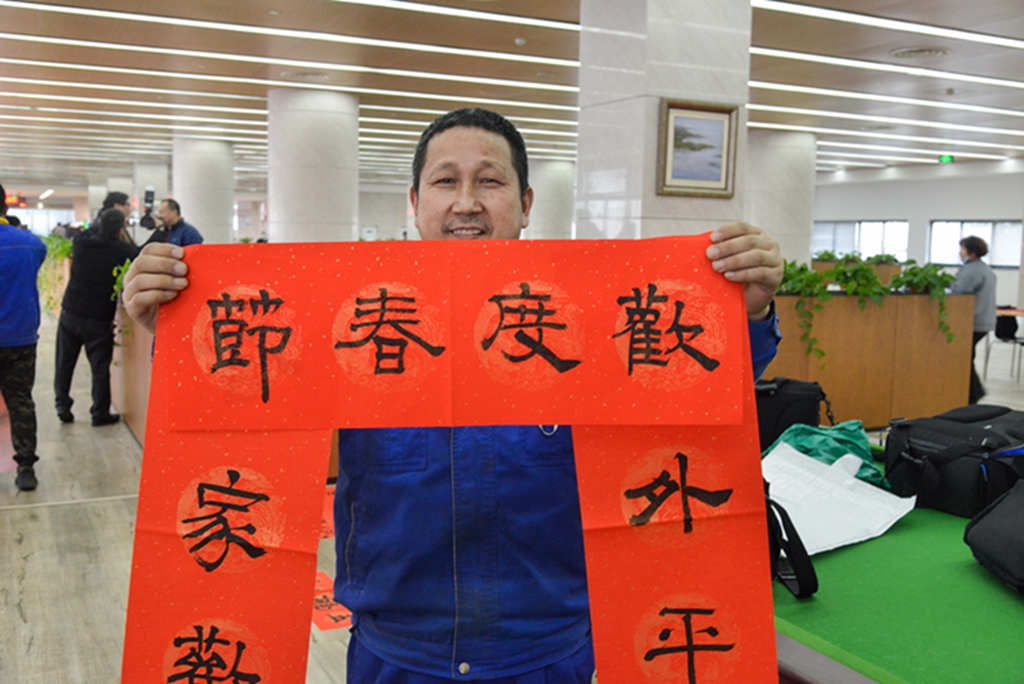 歡度春節
外平
家歡